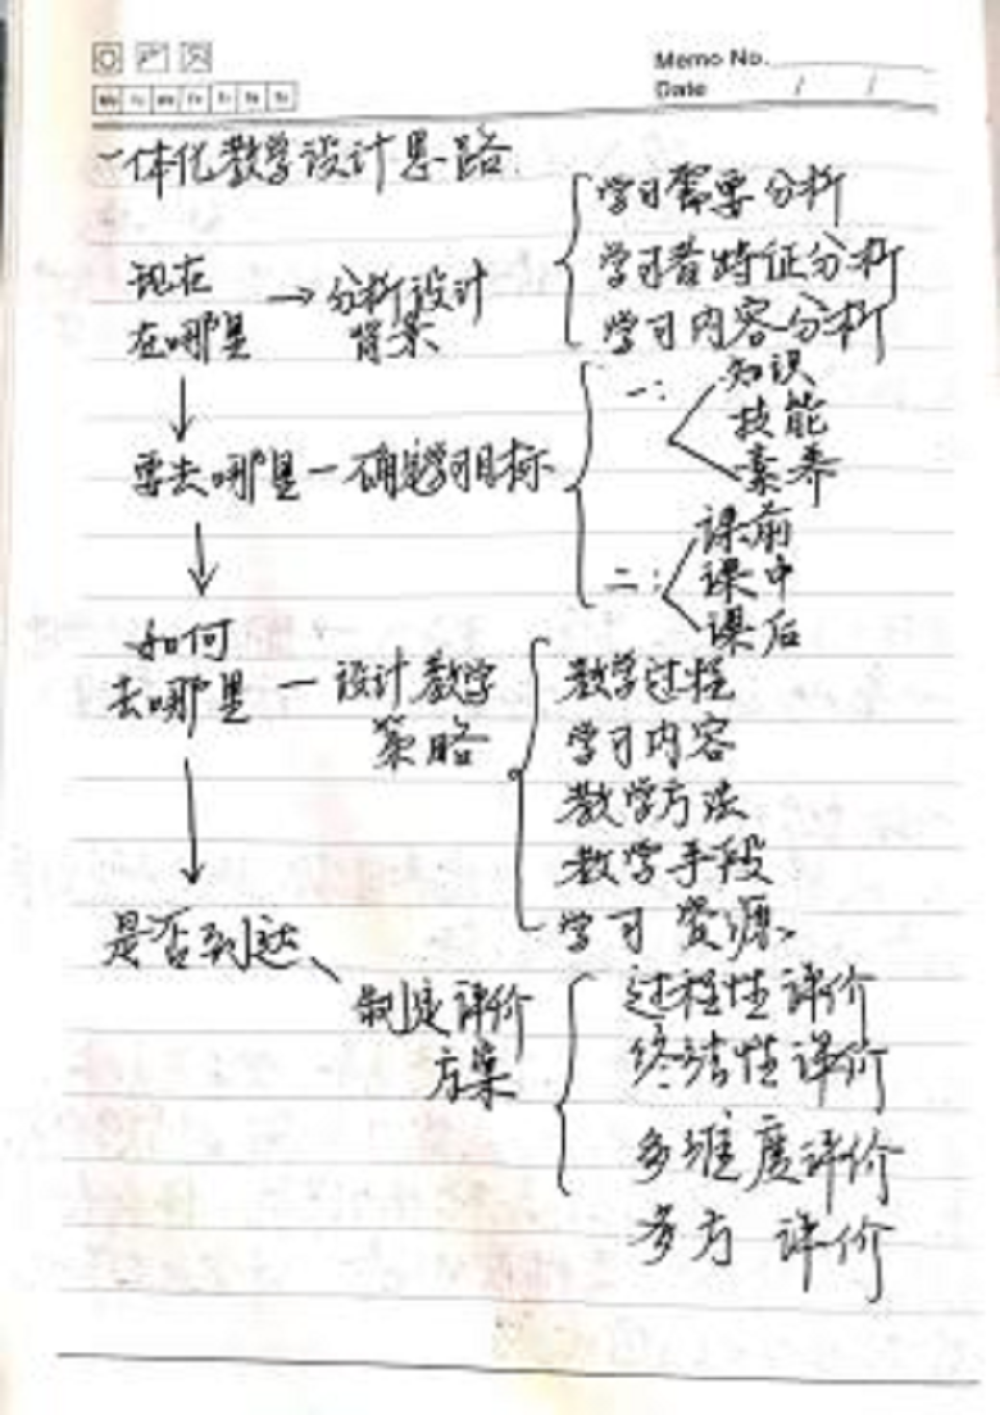 Memo No.
Date / /
一体化教学设计思路
学习需要分析
现在
在哪里
→分析设计
背景
学习者特征分析
学习内容分析
要去哪里—确定学习目标
一:
知识
技能
素养
二:
课前
课中
课后
如何
去哪里
—设计教学
策略
教学过程
学习内容
教学方法
教学手段
学习资源、
是否到达
制定评价
方案
过程性评价
终结性评价
多维度评价
多方 评价